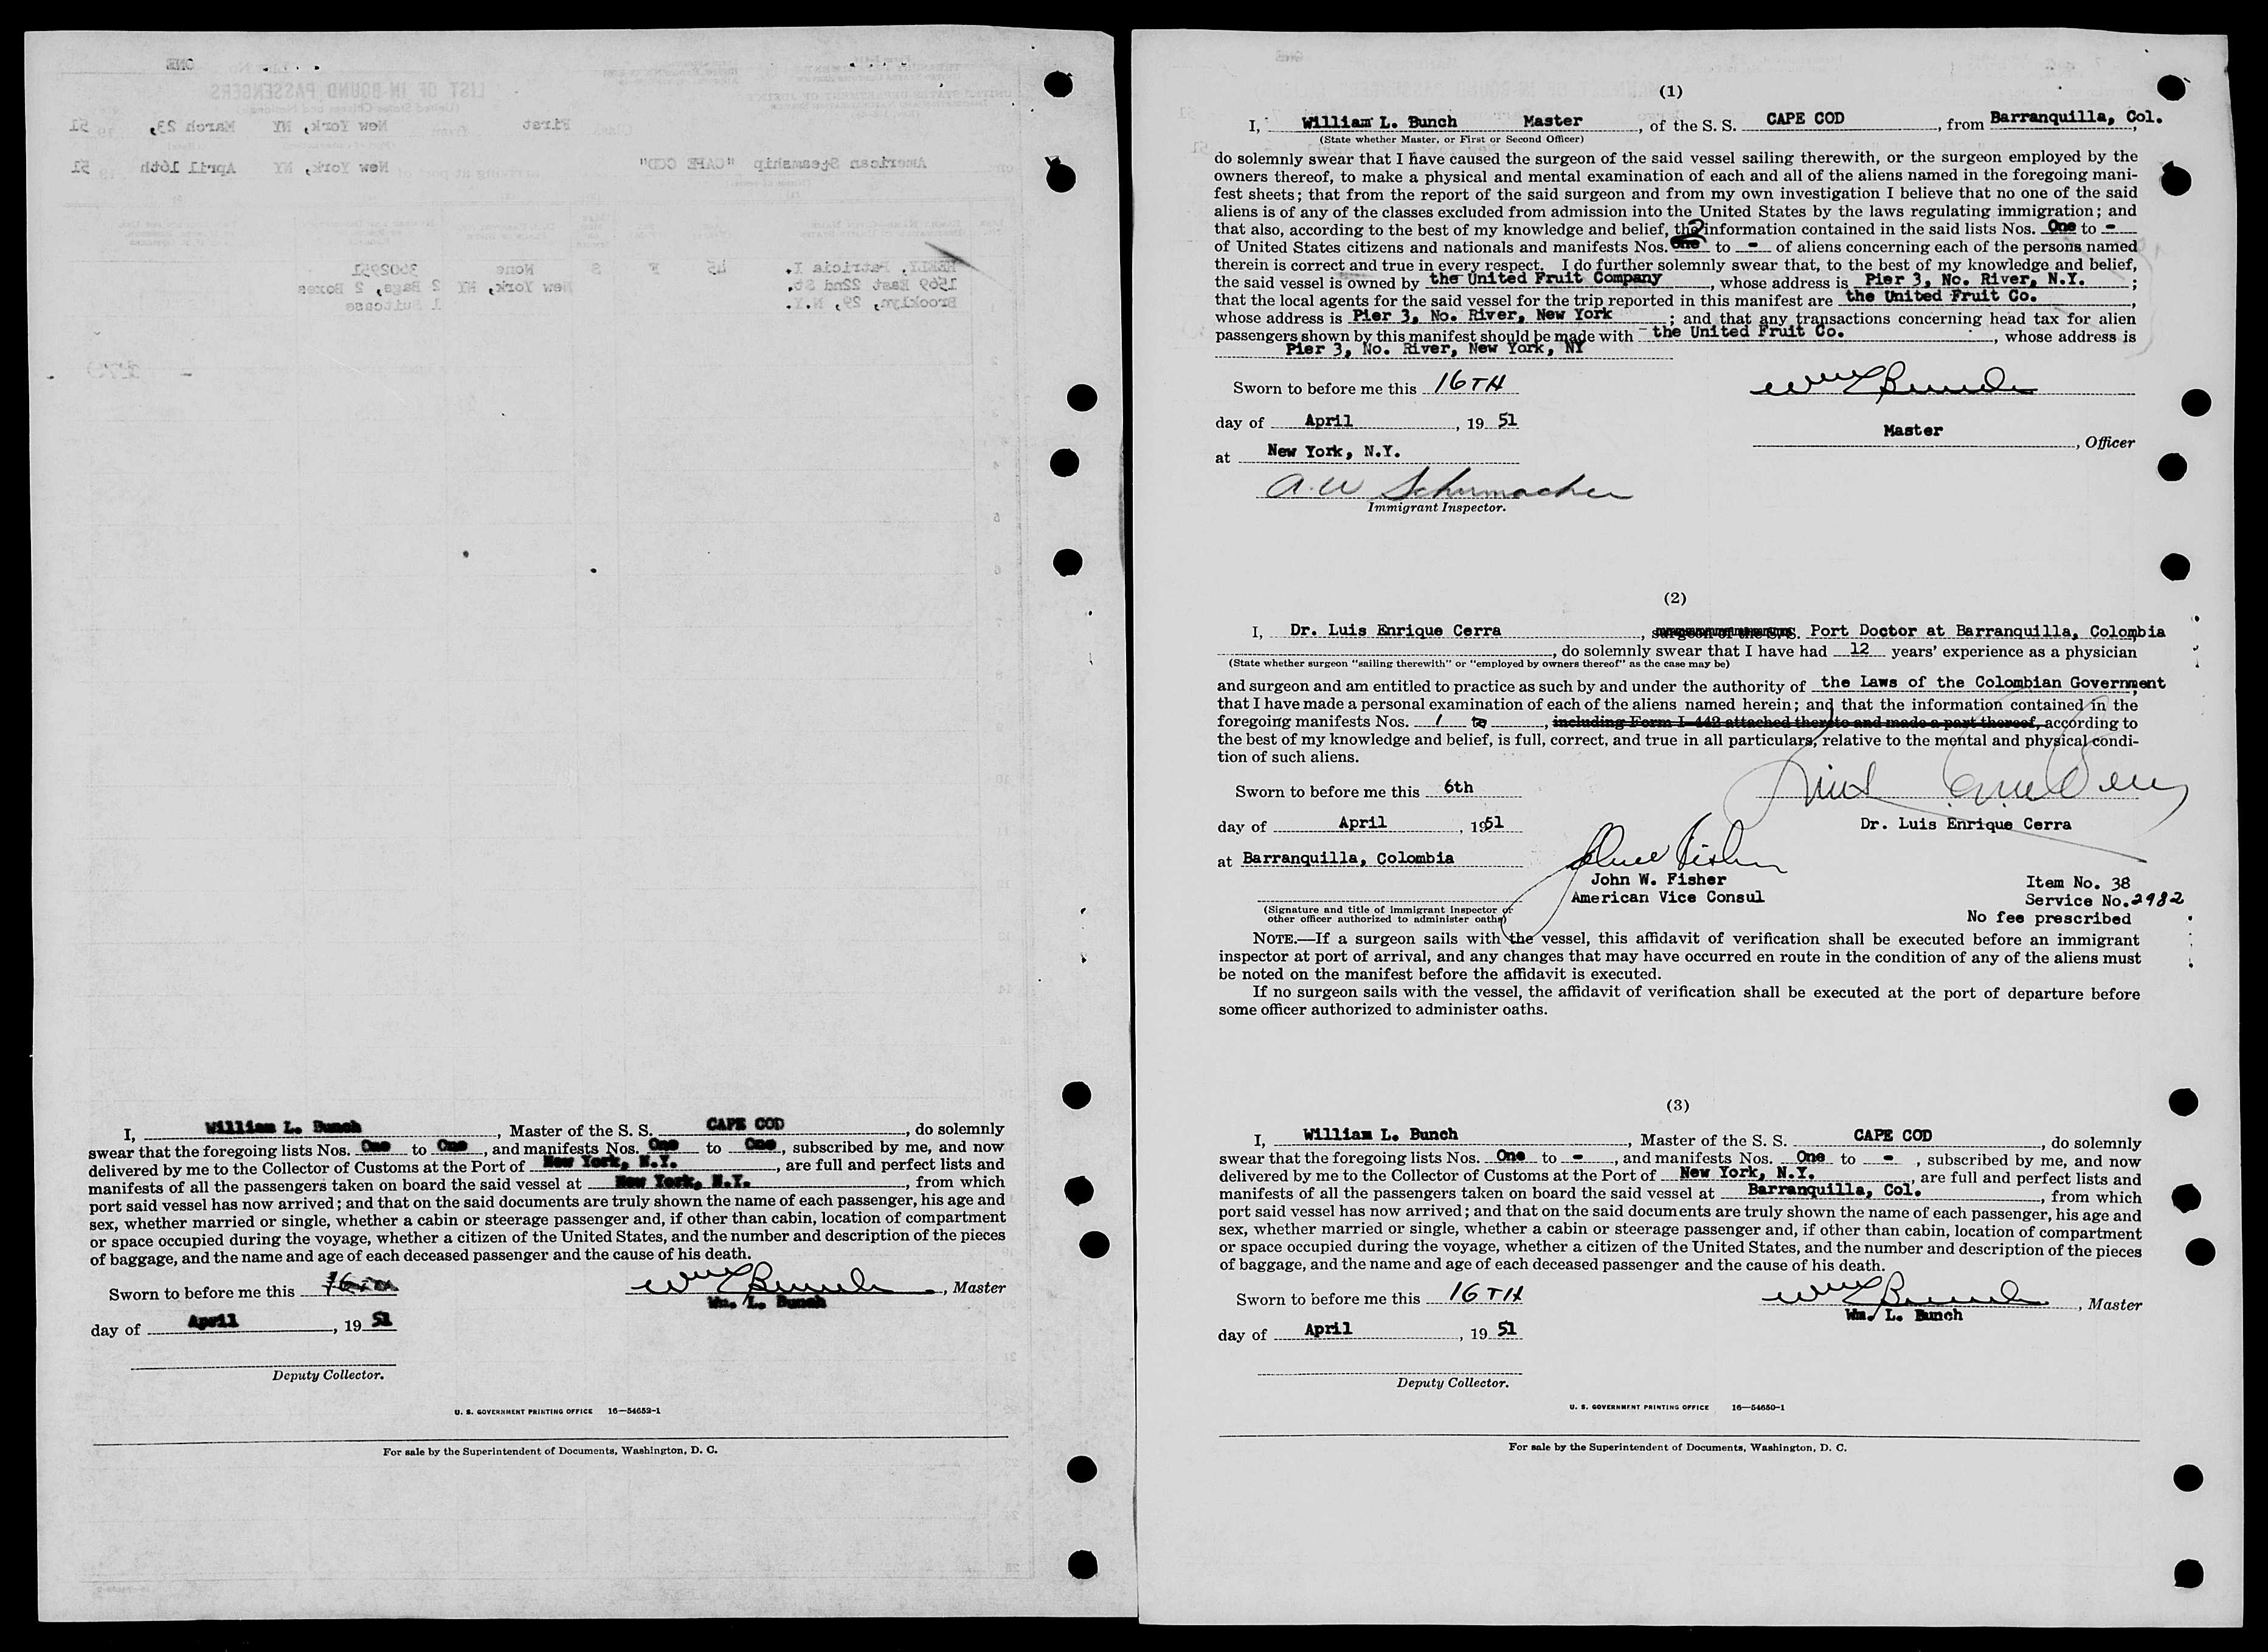 I, William L. Bunch, Master of the S. S. CAPE COD, do solemnly
swear that the foregoing lists Nos. One to One, and manifests Nos. One to One, subscribed by me, and now
delivered by me to the Collector of Customs at the Port of New York, N.Y., are full and perfect lists and
manifests of all the passengers taken on board the said vessel at New York, N.Y., from which
port said vessel has now arrived; and that on the said documents are truly shown the name of each passenger, his age and
sex, whether married or single, whether a cabin or steerage passenger and, if other than cabin, location of compartment
or space occupied during the voyage, whether a citizen of the United States, and the number and description of the pieces
of baggage, and the name and age of each deceased passenger and the cause of his death.
Sworn to before me this
Wm L Bunch, Master
Wm. L. Bunch
day of April, 19 51
Deputy Collector.
U. S. GOVERNMENT PRINTING OFFICE 16—54652-1
For sale by the Superintendent of Documents, Washington, D. C.
(1)
I, William L. Bunch Master, of the S. S. CAPE COD, from Barranquilla, Col.,
(State whether Master, or First or Second Officer)
do solemnly swear that I have caused the surgeon of the said vessel sailing therewith, or the surgeon employed by the
owners thereof, to make a physical and mental examination of each and all of the aliens named in the foregoing mani-
fest sheets; that from the report of the said surgeon and from my own investigation I believe that no one of the said
aliens is of any of the classes excluded from admission into the United States by the laws regulating immigration; and
that also, according to the best of my knowledge and belief, the information contained in the said lists Nos. One to -
of United States citizens and nationals and manifests Nos. One 2 to - of aliens concerning each of the persons named
therein is correct and true in every respect. I do further solemnly swear that, to the best of my knowledge and belief,
the said vessel is owned by the United Fruit Company, whose address is Pier 3, No. River, N.Y. ;
that the local agents for the said vessel for the trip reported in this manifest are the United Fruit Co. ,
whose address is Pier 3, No. River, New York ; and that any transactions concerning head tax for alien
passengers shown by this manifest should be made with the United Fruit Co. , whose address is
Pier 3, No. River, New York, NY
Sworn to before me this 16TH
Wm L Bunch
day of April, 19 51
Master, Officer
at New York, N.Y.
A. W Schumacher
Immigrant Inspector.
(2)
I, Dr. Luis Enrique Cerra, surgeon of the S.S. Port Doctor at Barranquilla, Colombia
, do solemnly swear that I have had 12 years' experience as a physician
(State whether surgeon "sailing therewith" or "employed by owners thereof" as the case may be)
and surgeon and am entitled to practice as such by and under the authority of the Laws of the Colombian Government,
that I have made a personal examination of each of the aliens named herein; and that the information contained in the
foregoing manifests Nos. 1 to , including Form I-442 attached thereto and made a part thereof, according to
the best of my knowledge and belief, is full, correct, and true in all particulars, relative to the mental and physical condi-
tion of such aliens.
Sworn to before me this 6th
day of April, 1951
Dr. Luis Enrique Cerra
at Barranquilla, Colombia
John W. Fisher
American Vice Consul
Item No. 38
Service No. 2982
No fee prescribed
(Signature and title of immigrant inspector or
other officer authorized to administer oaths)
NOTE.—If a surgeon sails with the vessel, this affidavit of verification shall be executed before an immigrant
inspector at port of arrival, and any changes that may have occurred en route in the condition of any of the aliens must
be noted on the manifest before the affidavit is executed.
If no surgeon sails with the vessel, the affidavit of verification shall be executed at the port of departure before
some officer authorized to administer oaths.
(3)
I, William L. Bunch, Master of the S. S. CAPE COD, do solemnly
swear that the foregoing lists Nos. One to -, and manifests Nos. One to - , subscribed by me, and now
delivered by me to the Collector of Customs at the Port of New York, N.Y., are full and perfect lists and
manifests of all the passengers taken on board the said vessel at Barranquilla, Col., from which
port said vessel has now arrived; and that on the said documents are truly shown the name of each passenger, his age and
sex, whether married or single, whether a cabin or steerage passenger and, if other than cabin, location of compartment
or space occupied during the voyage, whether a citizen of the United States, and the number and description of the pieces
of baggage, and the name and age of each deceased passenger and the cause of his death.
Sworn to before me this 16TH
Wm L Bunch, Master
Wm. L. Bunch
day of April, 19 51
Deputy Collector.
U. S. GOVERNMENT PRINTING OFFICE 16—54650-1
For sale by the Superintendent of Documents, Washington, D. C.